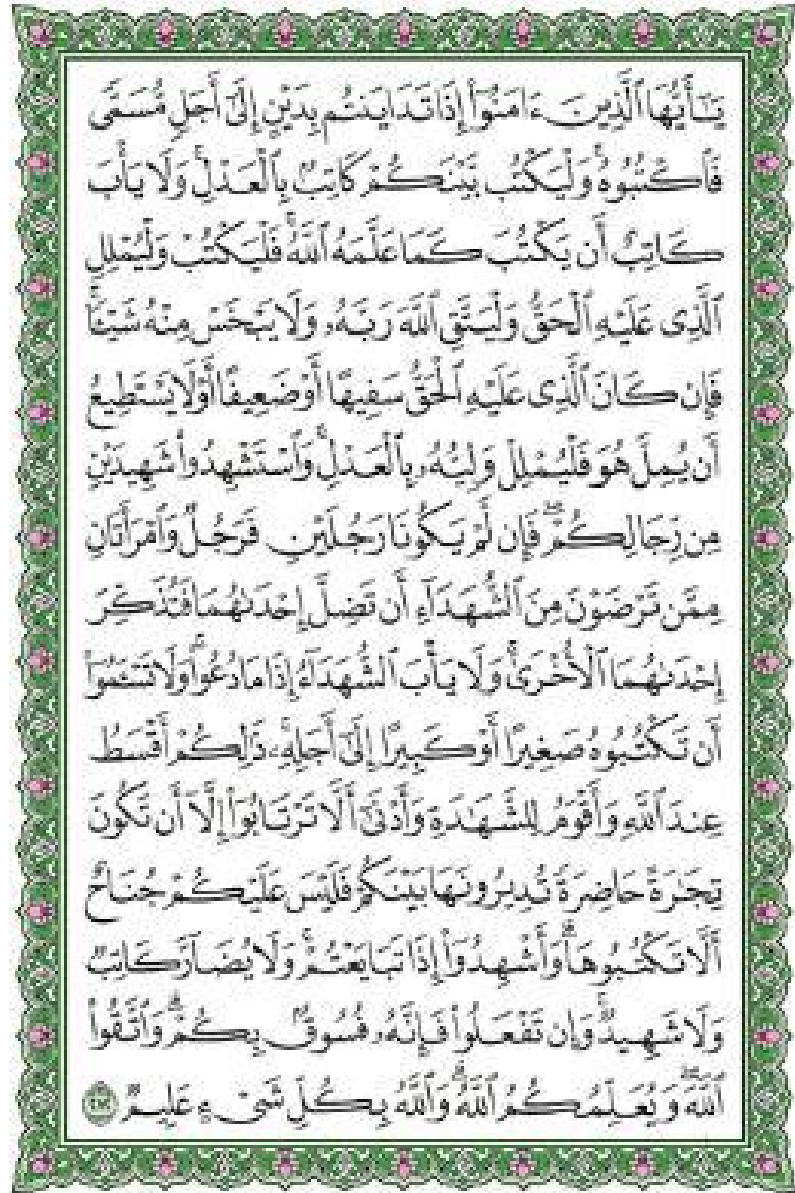 يَـٰٓأَيُّهَا ٱلَّذِينَ ءَامَنُوٓا۟ إِذَا تَدَايَنتُم بِدَيْنٍ إِلَىٰٓ أَجَلٍ مُّسَمًّى
فَٱكْتُبُوهُ ۚ وَلْيَكْتُب بَّيْنَكُمْ كَاتِبٌۢ بِٱلْعَدْلِ ۚ وَلَا يَأْبَ
كَاتِبٌ أَن يَكْتُبَ كَمَا عَلَّمَهُ ٱللَّهُ ۚ فَلْيَكْتُبْ وَلْيُمْلِلِ
ٱلَّذِى عَلَيْهِ ٱلْحَقُّ وَلْيَتَّقِ ٱللَّهَ رَبَّهُۥ وَلَا يَبْخَسْ مِنْهُ شَيْـًٔا ۚ
فَإِن كَانَ ٱلَّذِى عَلَيْهِ ٱلْحَقُّ سَفِيهًا أَوْ ضَعِيفًا أَوْ لَا يَسْتَطِيعُ
أَن يُمِلَّ هُوَ فَلْيُمْلِلْ وَلِيُّهُۥ بِٱلْعَدْلِ ۚ وَٱسْتَشْهِدُوا۟ شَهِيدَيْنِ
مِن رِّجَالِكُمْ ۖ فَإِن لَّمْ يَكُونَا رَجُلَيْنِ فَرَجُلٌ وَٱمْرَأَتَانِ
مِمَّن تَرْضَوْنَ مِنَ ٱلشُّهَدَآءِ أَن تَضِلَّ إِحْدَىٰهُمَا فَتُذَكِّرَ
إِحْدَىٰهُمَا ٱلْأُخْرَىٰ ۚ وَلَا يَأْبَ ٱلشُّهَدَآءُ إِذَا مَا دُعُوا۟ ۚ وَلَا تَسْـَٔمُوٓا۟
أَن تَكْتُبُوهُ صَغِيرًا أَوْ كَبِيرًا إِلَىٰٓ أَجَلِهِۦ ۚ ذَٰلِكُمْ أَقْسَطُ
عِندَ ٱللَّهِ وَأَقْوَمُ لِلشَّهَـٰدَةِ وَأَدْنَىٰٓ أَلَّا تَرْتَابُوٓا۟ ۖ إِلَّآ أَن تَكُونَ
تِجَـٰرَةً حَاضِرَةً تُدِيرُونَهَا بَيْنَكُمْ فَلَيْسَ عَلَيْكُمْ جُنَاحٌ
أَلَّا تَكْتُبُوهَا ۗ وَأَشْهِدُوٓا۟ إِذَا تَبَايَعْتُمْ ۚ وَلَا يُضَآرَّ كَاتِبٌ
وَلَا شَهِيدٌ ۚ وَإِن تَفْعَلُوا۟ فَإِنَّهُۥ فُسُوقٌۢ بِكُمْ ۗ وَٱتَّقُوا۟
ٱللَّهَ ۖ وَيُعَلِّمُكُمُ ٱللَّهُ ۗ وَٱللَّهُ بِكُلِّ شَىْءٍ عَلِيمٌ ٢٨٢